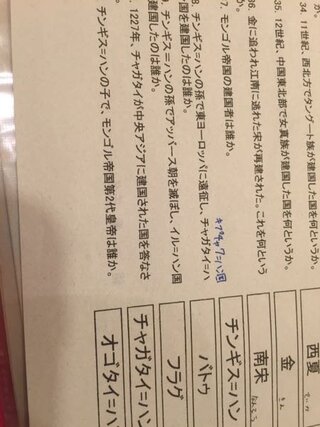 か。
34. 11世紀、西北方でタングート族が建国した国を何というか。
西夏
35. 12世紀、中国東北部で女真族が建国した国を何というか。
金
きん
36. 金に追われ江南に逃れた宋が再建された。これを何という
か。
南宋
なんそう
7. モンゴル帝国の建国者は誰か。
チンギス=ハン
キプチャク=ハン国
8. チンギス=ハンの孫で東ヨーロッパに遠征し、チャガタイ=ハ
国を建国したのは誰か。
バトゥ
9. チンギス=ハンの孫でアッバース朝を滅ぼし、イル=ハン国
建国したのは誰か。
フラグ
1227年、チャガタイが中央アジアに建国された国を答なさ
チャガタイ=ハン
チンギス=ハンの子で、モンゴル帝国第2代皇帝は誰か。
オゴタイ=ハン